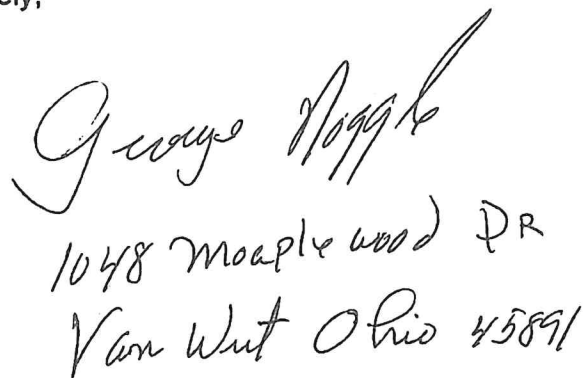 ely,
George Noggle
1048 Moaplewood DR
Van Wert Ohio 45891